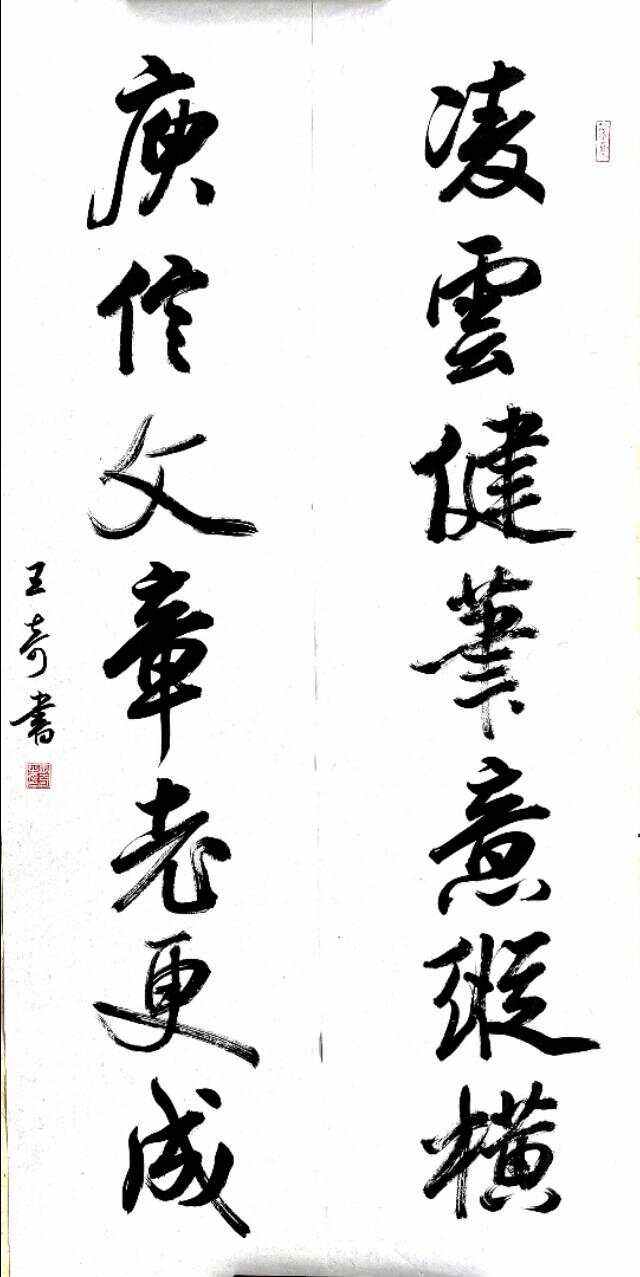 凌雲健筆意縱横
庾信文章老更成
王奇書